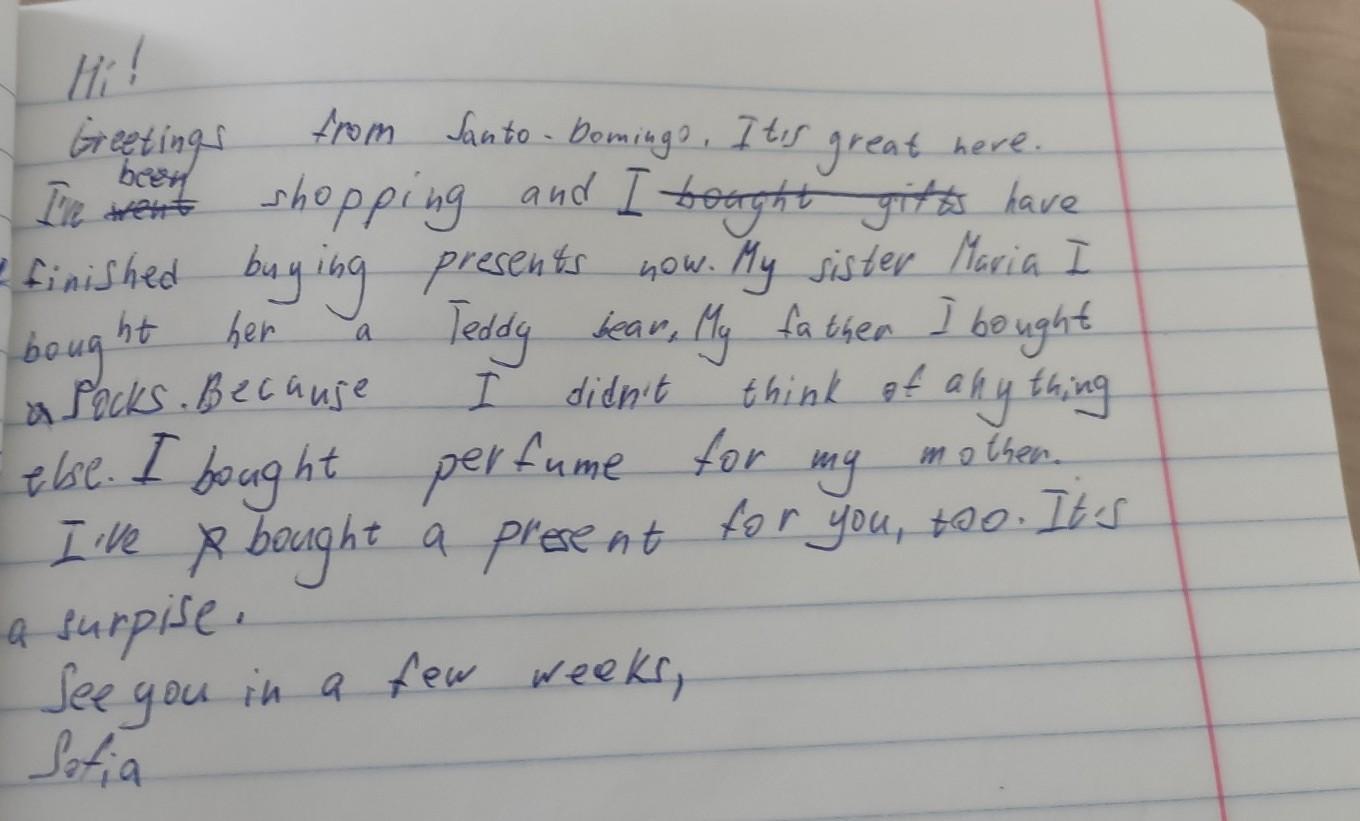 Hi!
Greetings from Santo-Domingo. It's great here.
I've been went shopping and I bought gifts have
finished buying presents now. My sister Maria I
bought her a Teddy bear, My father I bought
a Socks. Because I didn't think of anything
else. I bought perfume for my mother.
I've bought a present for you, too. It's
a surpise.
See you in a few weeks,
Sofia